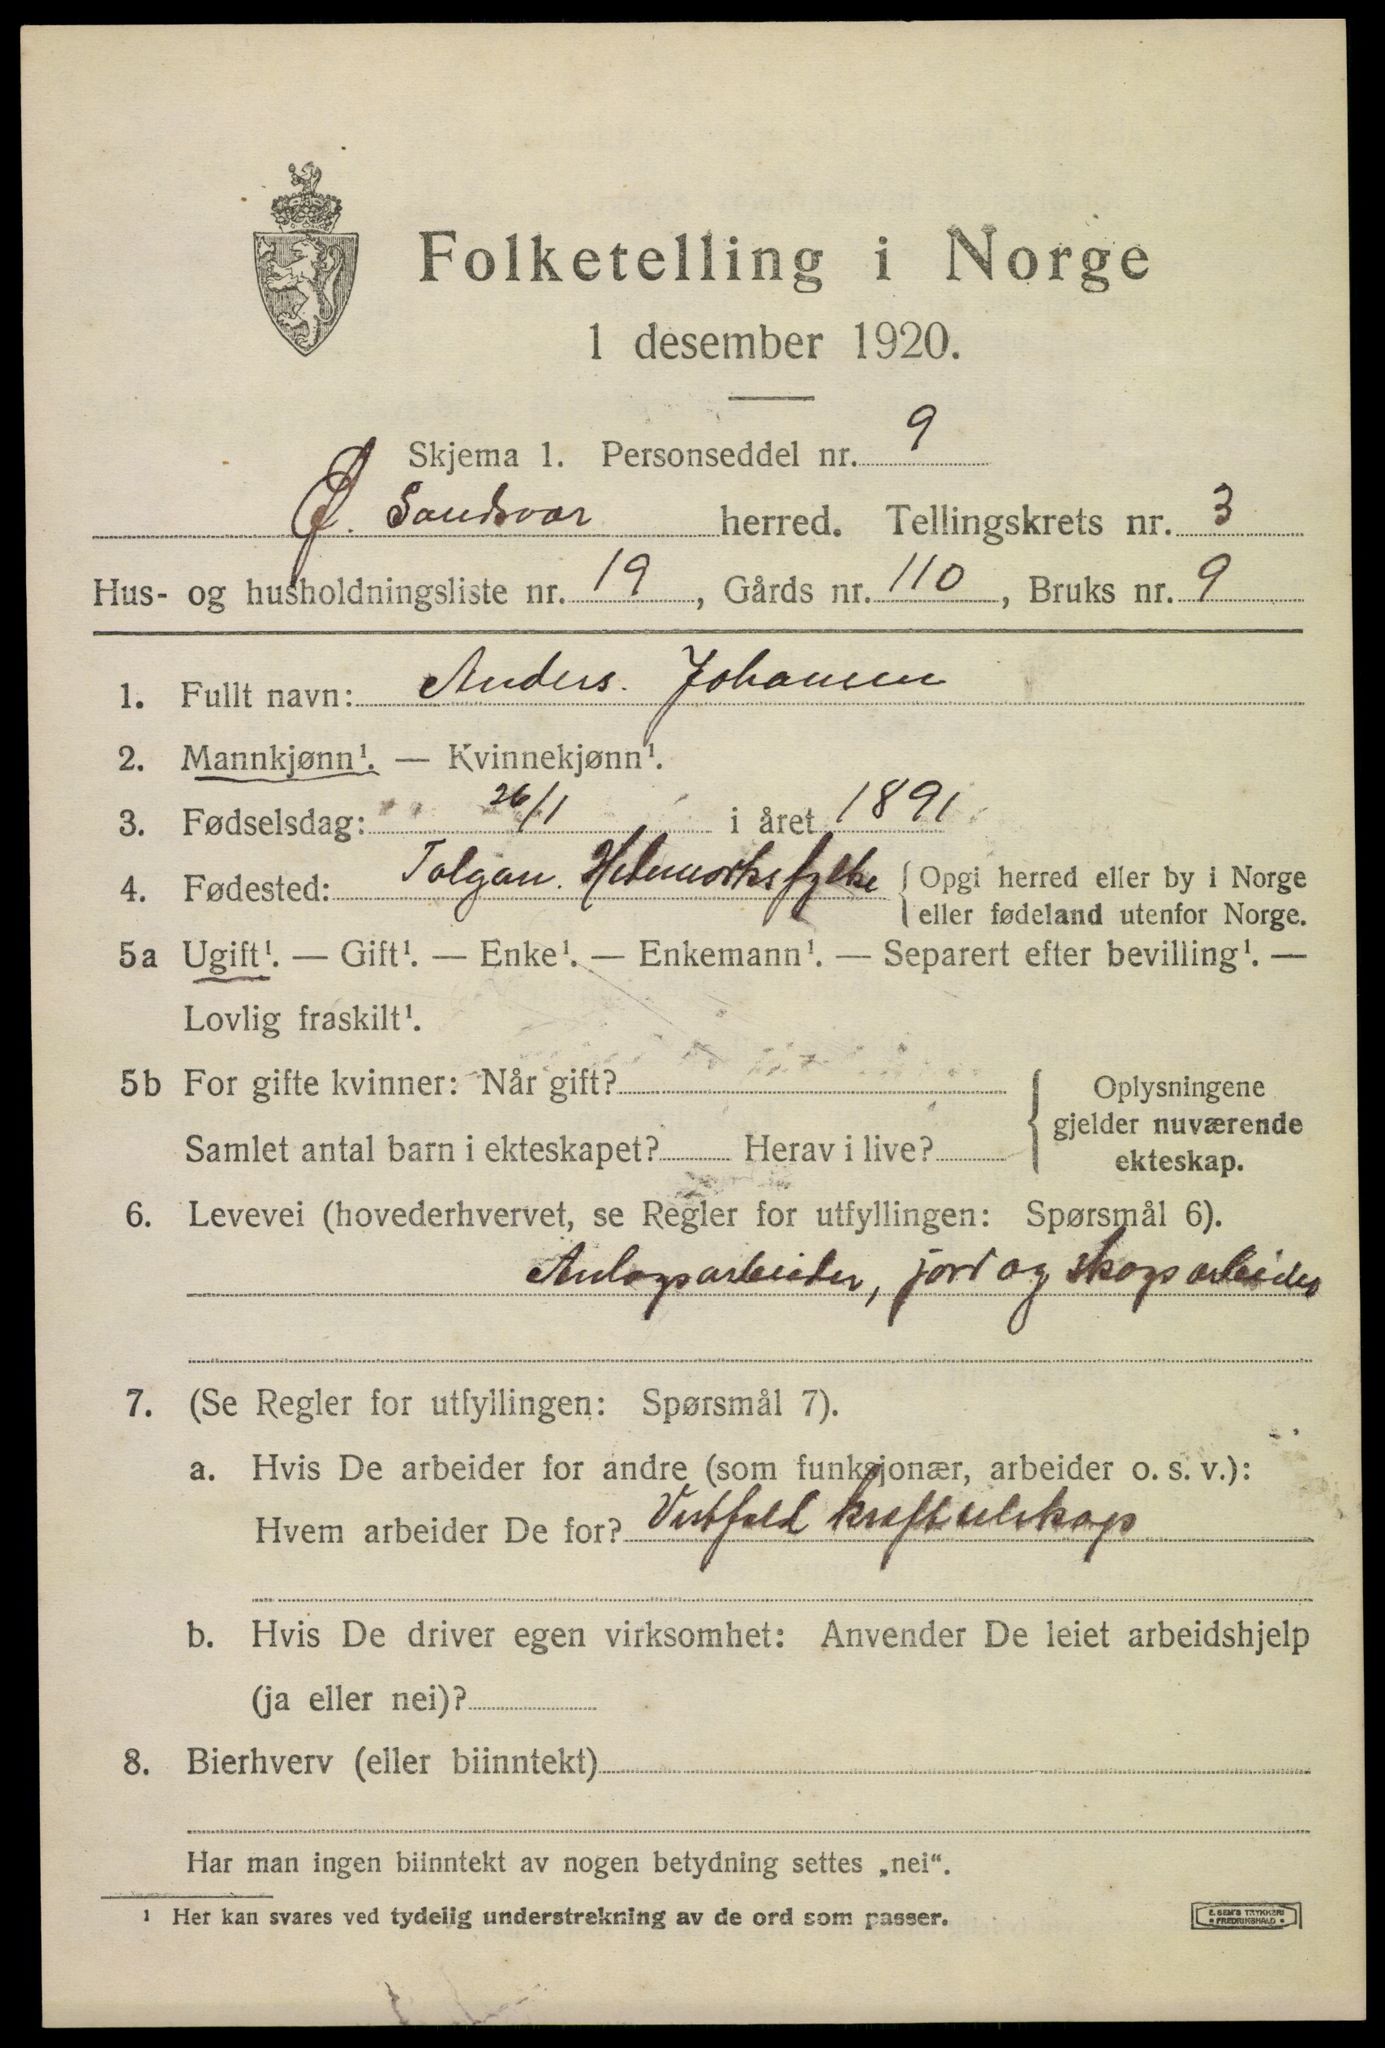 Folketelling i Norge
1 desember 1920.
Skjema 1. Personseddel nr. 9
Ø. Sandsvær herred. Tellingskrets nr. 3
Hus- og husholdningsliste nr. 19, Gårds nr. 110, Bruks nr. 9
1. Fullt navn: Anders. Johansen
2. Mannkjønn¹. — Kvinnekjønn¹.
3. Fødselsdag: 26/1 i året 1891
4. Fødested: Tolgan. Hedemarksfylke { Opgi herred eller by i Norge
eller fødeland utenfor Norge.
5a Ugift¹. — Gift¹. — Enke¹. — Enkemann¹. — Separert efter bevilling¹. —
Lovlig fraskilt¹.
5b For gifte kvinner: Når gift?
Samlet antal barn i ekteskapet? Herav i live?
Oplysningene
gjelder nuværende
ekteskap.
6. Levevei (hovederhvervet, se Regler for utfyllingen: Spørsmål 6).
Anlægsarbeider, jord og skogsarbeider
7. (Se Regler for utfyllingen: Spørsmål 7).
a. Hvis De arbeider for andre (som funksjonær, arbeider o. s. v.):
Hvem arbeider De for? Vestfold kraftselskap
b. Hvis De driver egen virksomhet: Anvender De leiet arbeidshjelp
(ja eller nei)?
8. Bierhverv (eller biinntekt)
Har man ingen biinntekt av nogen betydning settes „nei“.
¹ Her kan svares ved tydelig understrekning av de ord som passer.
E. SEM'S TRYKKERI
• FREDRIKSHALD •